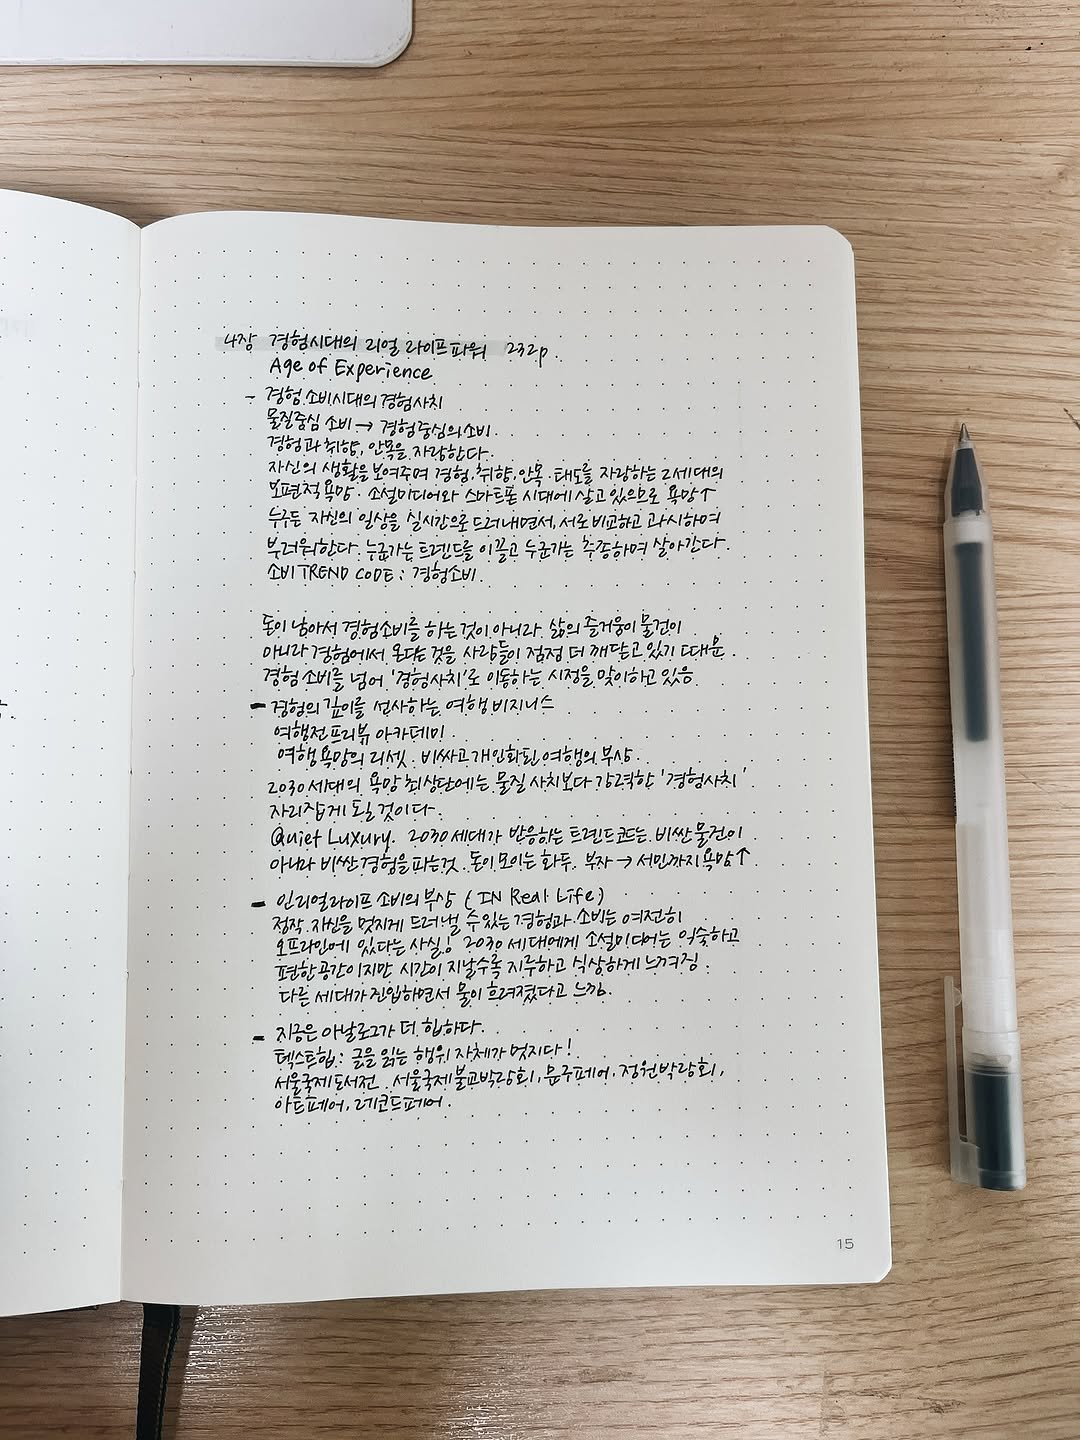 4장 경험시대의 리얼 라이프파워 232p
Age of Experience
- 경험 소비시대의 경험사치
물질중심 소비 → 경험중심의 소비.
경험과 취향, 안목을 자랑한다.
자신의 생활을 보여주며 경험, 취향, 안목·태도를 자랑하는 2세대의
보편적 욕망. 소셜미디어와 스마트폰 시대에 살고 있으므로 욕망↑
누구든 자신의 일상을 실시간으로 드러내면서, 서로 비교하고 과시하며
부러워한다. 누군가는 트렌드를 이끌고 누군가는 추종하며 살아간다.
소비 TREND CODE : 경험소비.
돈이 남아서 경험소비를 하는 것이 아니라 삶의 즐거움이 물건이
아니라 경험에서 온다는 것을 사람들이 점점 더 깨닫고 있기 때문.
경험 소비를 넘어 '경험사치'로 이동하는 시점을 맞이하고 있음
- 경험의 깊이를 선사하는 여행 비지니스
여행전 프리뷰 아카데미.
여행 욕망의 리셋. 비싸고 개인화된 여행의 부상.
2030세대의 욕망 최상단에는 물질 사치보다 강력한 '경험사치'
자리잡게 될 것이다.
Quiet Luxury. 2030세대가 반응하는 트렌드코드는 비싼 물건이
아니라 비싼 경험을 파는것. 돈이 모이는 화두. 부자 → 서민까지 욕망↑
- 인리얼라이프 소비의 부상 (IN Real Life)
정작 자신을 멋지게 드러낼 수 있는 경험과 소비는 여전히
오프라인에 있다는 사실! 2030 세대에게 소셜미디어는 익숙하고
편한 공간이지만 시간이 지날수록 지루하고 식상하게 느껴짐.
다른 세대가 진입하면서 물이 흐려졌다고 느낌.
- 지금은 아날로그가 더 힙하다.
텍스트힙 : 글을 읽는 행위 자체가 멋지다!
서울국제도서전. 서울국제불교박람회, 문구페어, 정원박람회,
아트페어, 레코드페어.
15